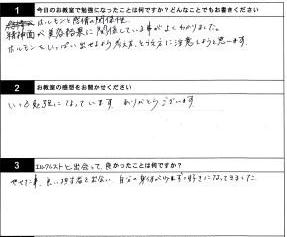 1 今日のお教室で勉強になったことは何ですか？どんなことでもお書きください
ホルモンと感情の関係性
精神面が美容結果に関係している事がよくわかりました。
ホルモンをいっぱい出せるよう考え方、とらえ方に注意しようと思います。
2 お教室の感想をお聞かせください
いつも勉強になっています ありがとうございます
3 エルクルストと出会って、良かったことは何ですか？
やせた事、良い指導者と出会い 自分の身体が少しずつ好きになってきました